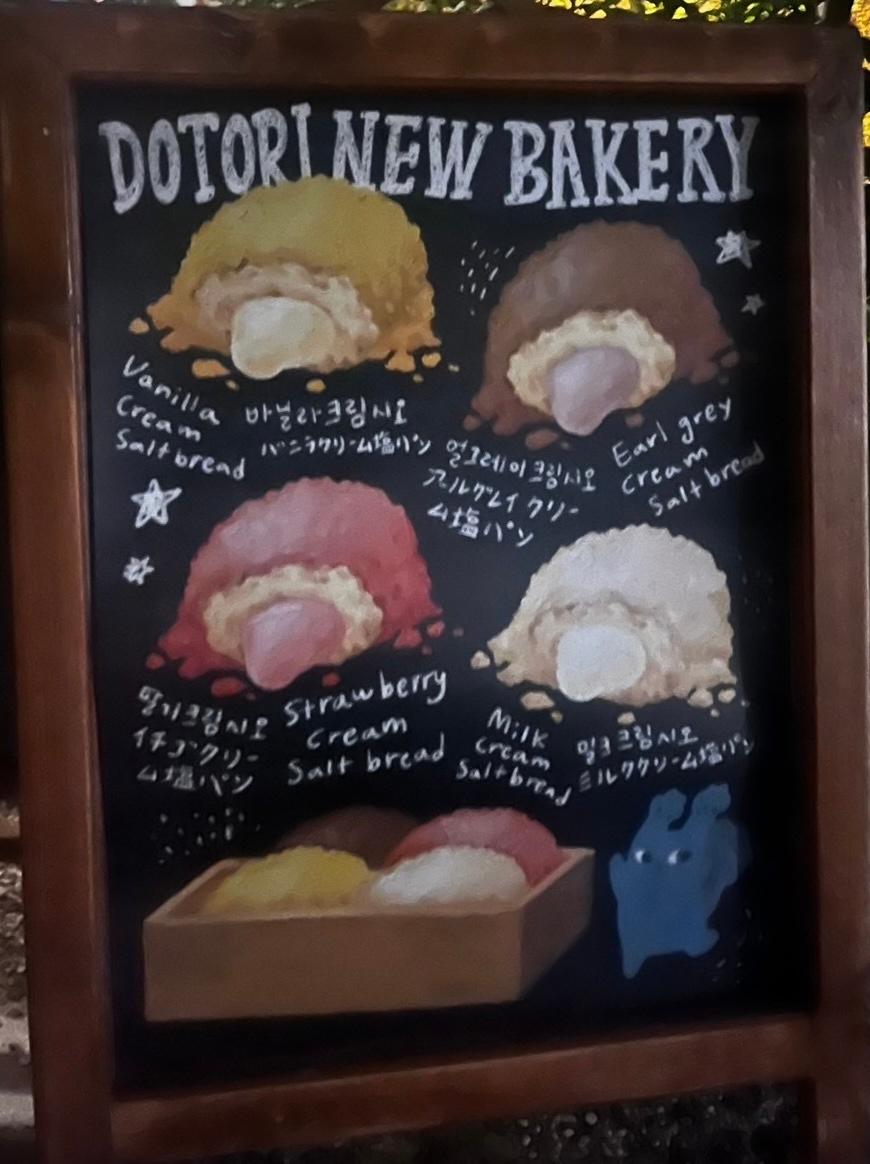 DOTORI NEW BAKERY
Vanilla
Cream
Salt bread
바닐라크림시오
バニラクリーム塩パン
얼그레이 크림시오
アールグレイ クリー
ム塩パン
Earl grey
cream
Salt bread
딸기크림시오
イチゴクリー
ム塩パン
Strawberry
cream
Salt bread
Milk
Cream
Salt bread
밀크크림시오
ミルククリーム塩パン